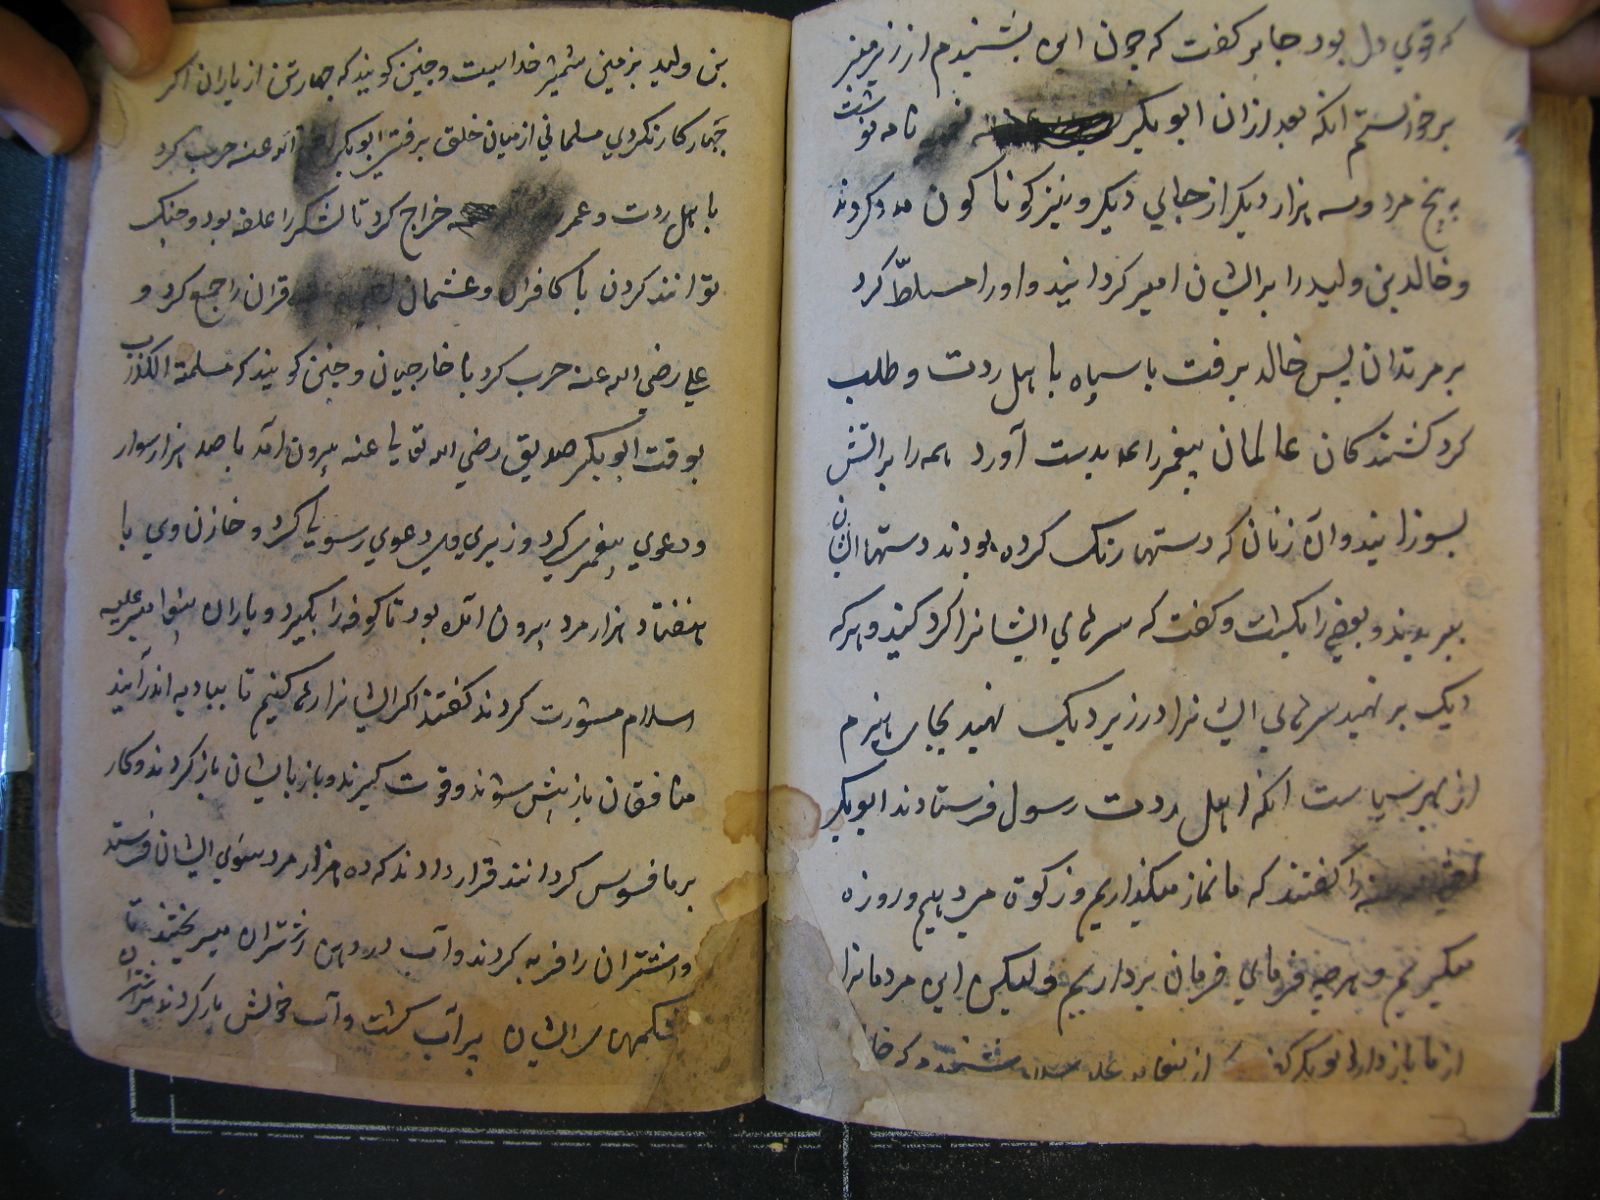 که قوي دل بود جابر کفت که چون این بشنیدم از زیر منبر
برخواستم انکه بعد ازان ابو بکر نامه نوشت
به پنج مرد وسه هزار دیکر از جایي دیکر ونیز کوناکون مدد کردند
وخالد بن ولید را بر ایشان امیر کردانید واو را مسلطّ کرد
بر مرتدان پس خالد برفت با سپاه با اهل ردت وطلب
کرد کشندکان عالمان پیغمبر را همه بدست آورد همه را بر آتش
بسوزانید وآن زنان که دستها رنک کرده بودند دستها ایشان
ببریدند وبعضي را بکشت وکفت که سرهاي ایشانرا کرد کنید وهرکه
دیک بر نهید سرهاي ایشانرا در زیر دیک نهید بجاي هیزم
از بهر سیاست انکه اهل ردت رسول فرستادند ابوبکر
را کفتند که ما نماز میکذاریم وزکوة میدهیم وروزه
میکیریم وهرچه فرمایي فرمان برداریم ولیکن این مردمانرا
از ما باز دار ابو بکر کفت از پیغامبر علیه السلام شنیدم که خالد
بن ولید بر زمین شمشیر خداست وچنین کویند که چهار تن از یاران اکر
چهار کار نکردي مسلماني از میان خلق برفتي ابوبکر الله عنه حرب کرد
با اهل ردت وعمر خراج کرد تا لشکر را علفه بود وجنک
توانند کردن با کافران وعثمان قران را جمع کرد و
علي رضي الله عنه حرب کرد با خارجیان وچنین کویند که مسلمة الکذاب
بوقت ابوبکر صدیق رضي الله تعالي عنه بیرون آمد با صد هزار سوار
ودعوي پیغمبري کرد وزیري وي دعوي رسولي کرد وخازن وي با
هفتاد هزار مرد بیرون آمده بود تا کوفه را بکیرد ویاران پیغامبر علیه
السلام مشورت کردند کفتند اکر ایشانرا رها کنیم تا ببادیه اندر آیند
منافقان باز پیش شوند وقوت کیرند وباز بایشان باز کردند وکار
بر ما فسوس کردانند قرار دادند که ده هزار مرد بسوي ایشان فرستند
واشتران را فربه کردند وآب در دهن اشتران میریختند تا
شکمهاي ایشان پر آب کشت وآب خوش بار کردند بر اشتران